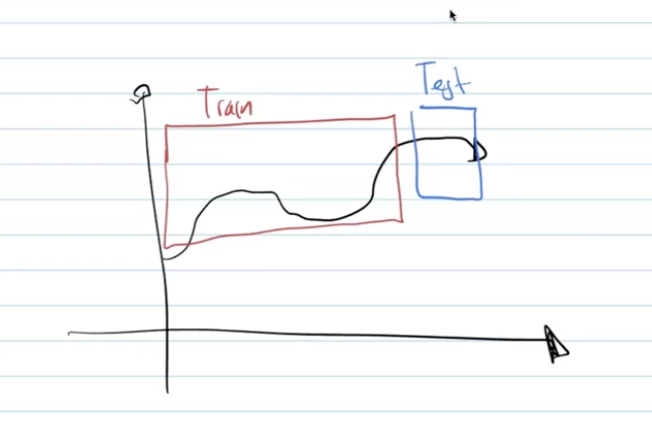 Train
Test